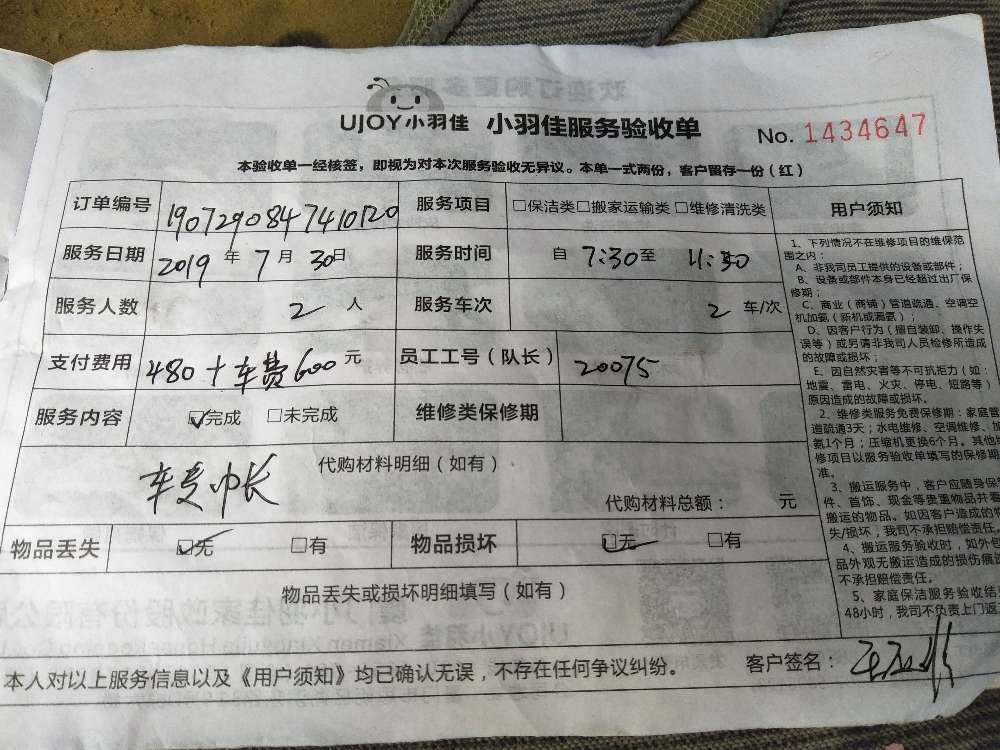 UJOY小羽佳 小羽佳服务验收单 No. 1434647
本验收单一经核签，即视为对本次服务验收无异议。本单一式两份，客户留存一份（红）
订单编号 190729084741020 服务项目 □保洁类□搬家运输类□维修清洗类
服务日期 2019 年 7 月 30 日 服务时间 自 7:30 至 11:30
服务人数 2 人 服务车次 2 车/次
支付费用 480+车费600 元 员工工号（队长） 20075
服务内容 ☑完成 □未完成 维修类保修期
代购材料明细（如有）
车费
代购材料总额： 元
物品丢失 ☑无 □有 物品损坏 ☑无 □有
物品丢失或损坏明细填写（如有）
用户须知
1、下列情况不在维修项目的维保范
围之内：
A、非我司员工提供的设备或部件；
B、设备或部件本身已经超过出厂保
修期；
C、商业（商铺）管道疏通、空调空
机加氨（新机或漏氨）；
D、因客户行为（擅自装卸、操作失
误等）或另请非我司人员检修所造成
的故障或损坏；
E、因自然灾害等不可抗拒力（如：
地震、雷电、火灾、停电、短路等）
原因造成的故障或损坏。
2、维修类服务免费保修期：家庭管
道疏通3天；水电维修、空调维修、加
氨1个月；压缩机更换6个月。其他维
修项目以服务验收单填写的保修期
准。
3、搬运服务中，客户应随身保管
件、首饰、现金等贵重物品并看
搬运的物品。如因客户造成的
失/损坏，我司不承担赔偿责任。
4、搬运服务验收时，如外包
品外观无搬运造成的损伤痕
不承担赔偿责任。
5、家庭保洁服务验收结
48小时，我司不负责上门返
本人对以上服务信息以及《用户须知》均已确认无误，不存在任何争议纠纷。 客户签名：